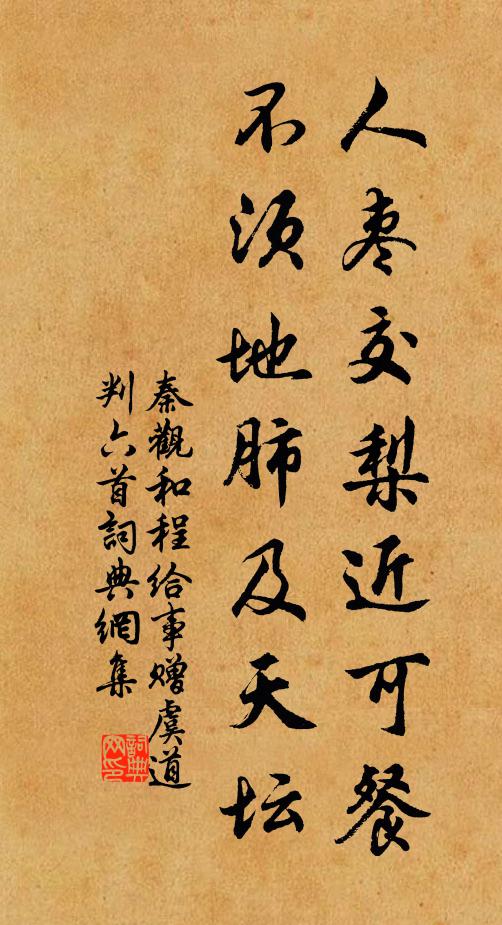 人枣交梨近可餐
不须地肺及天坛
秦觀和程给事赠虞道
判六首詞典網集
詞典
网印